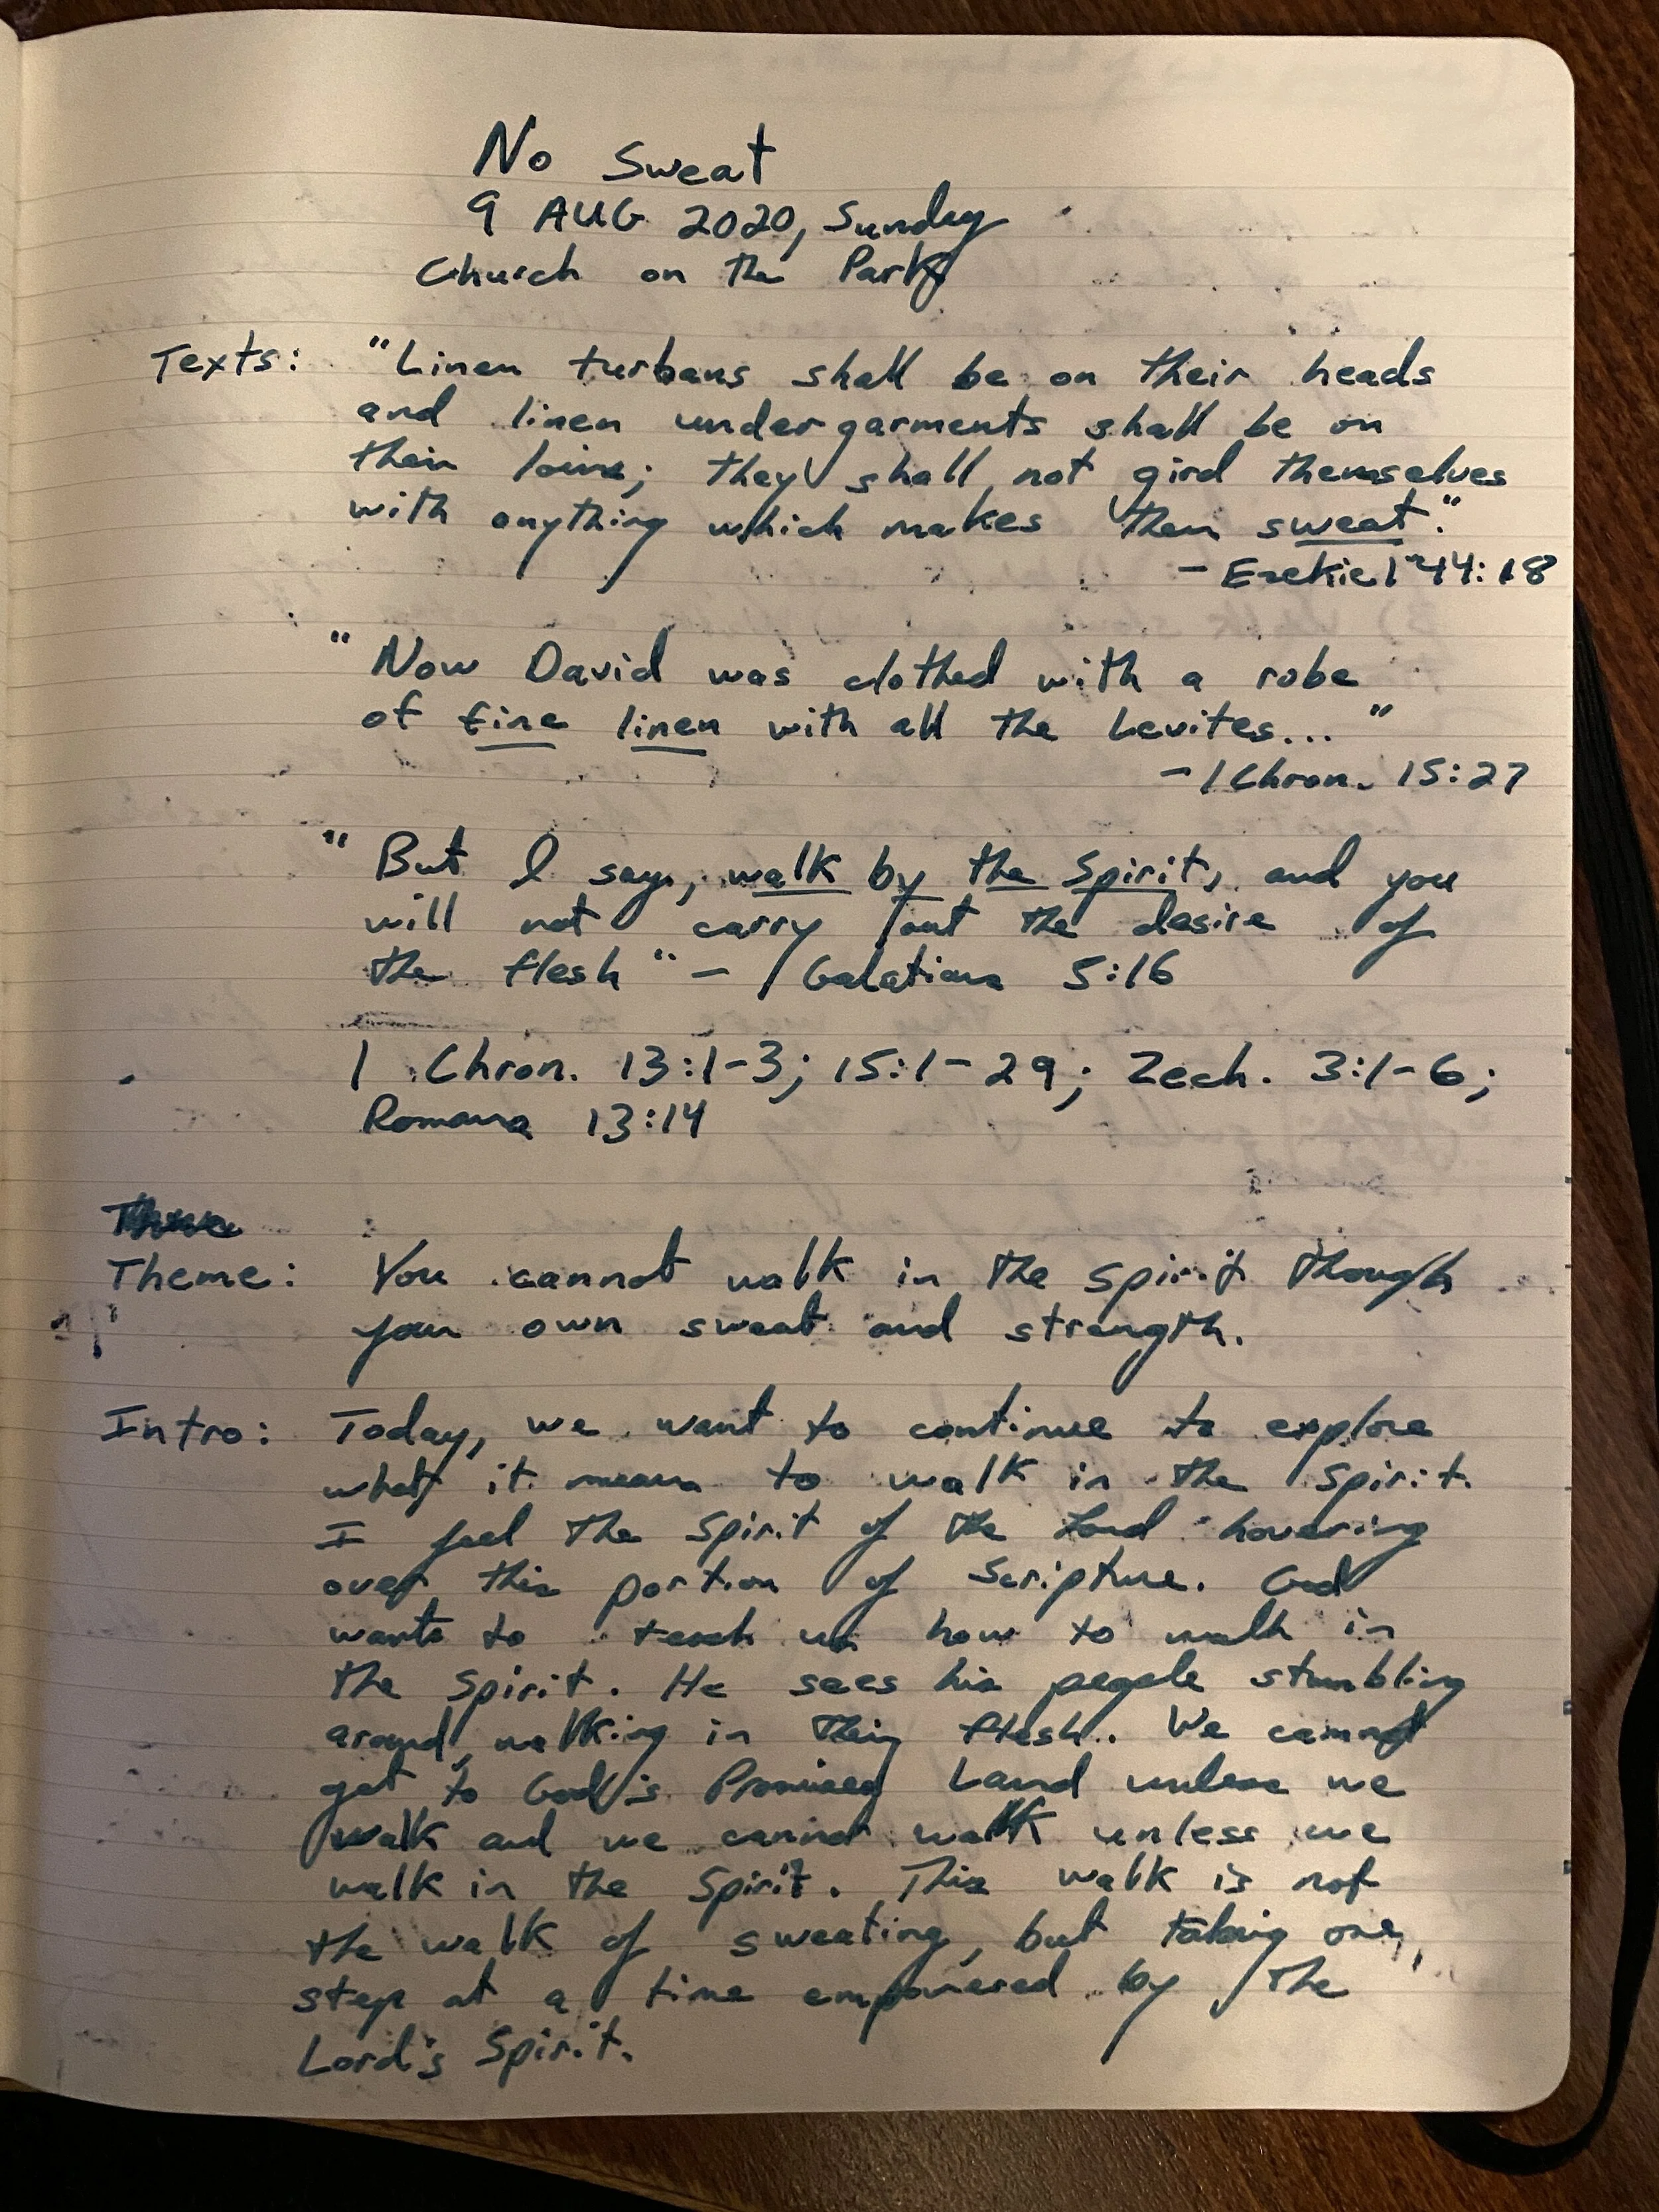 No Sweat
9 AUG 2020, Sunday
Church on the Park
Texts: "Linen turbans shall be on their heads
and linen undergarments shall be on
their loins; they shall not gird themselves
with anything which makes them sweat."
- Ezekiel 44:18
"Now David was clothed with a robe
of fine linen with all the Levites..."
- 1 Chron. 15:27
"But I say, walk by the Spirit, and you
will not carry out the desire of
the flesh" - Galatians 5:16
1 Chron. 13:1-3; 15:1-29; Zech. 3:1-6;
Romans 13:14
Theme: You cannot walk in the Spirit though
your own sweat and strength.
Intro: Today, we want to continue to explore
what it means to walk in the Spirit.
I feel the Spirit of the Lord hovering
over this portion of Scripture. God
wants to teach us how to walk in
the Spirit. He sees his people stumbling
around, walking in their flesh. We cannot
get to God's Promised Land unless we
walk and we cannot walk unless we
walk in the Spirit. This walk is not
the walk of sweating, but taking one
step at a time empowered by the
Lord's Spirit.